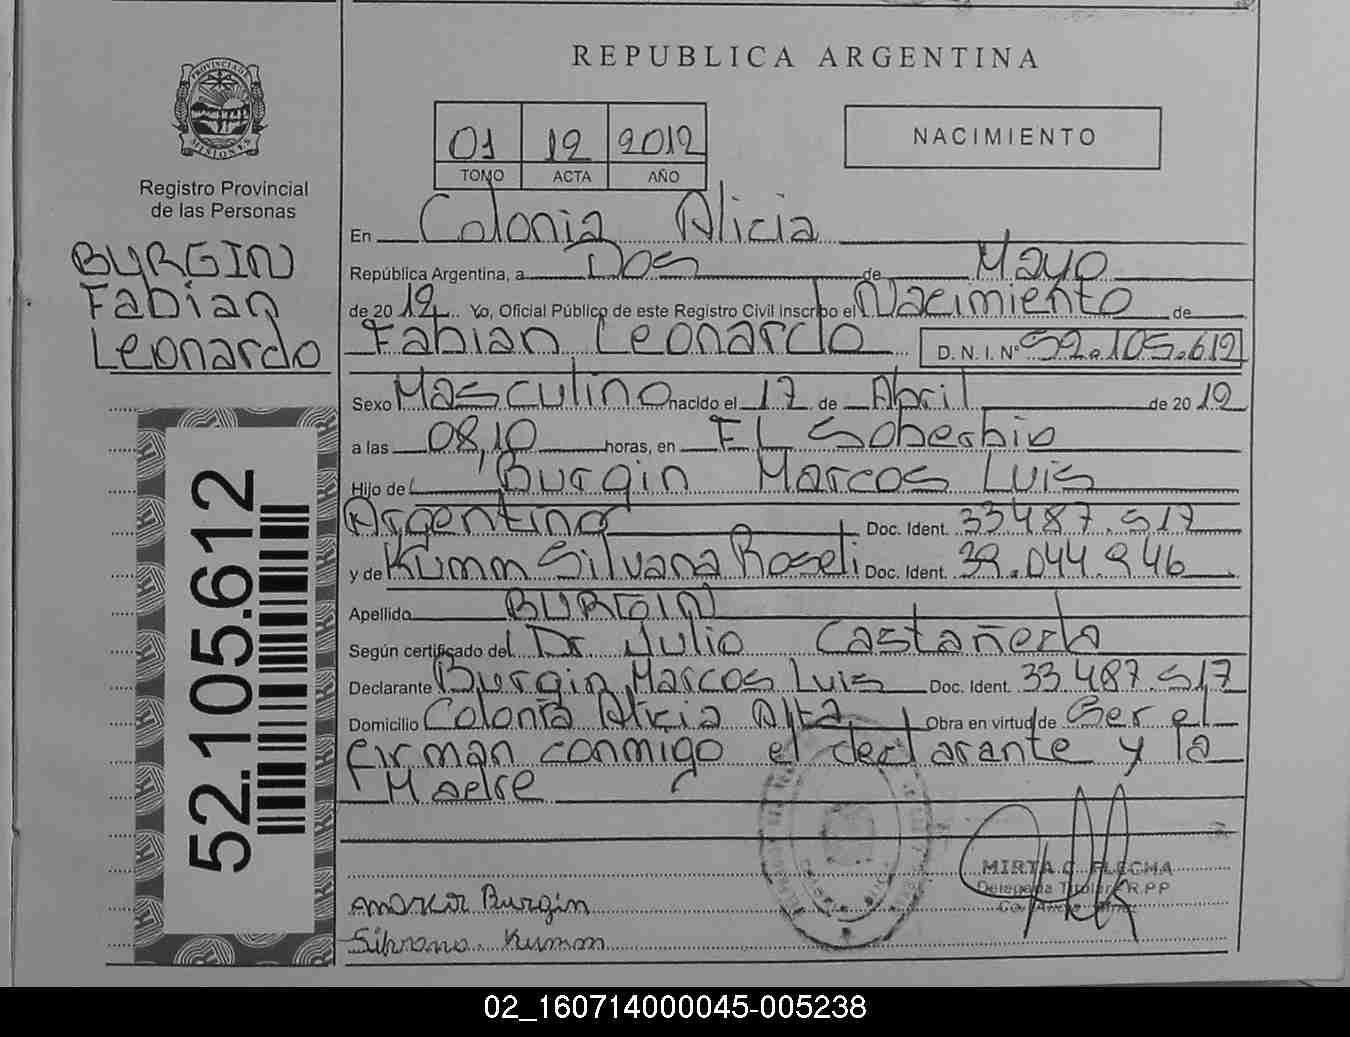 REPUBLICA ARGENTINA
PROVINCIA DE MISIONES
Registro Provincial
de las Personas
BURGIN
Fabian
Leonardo
52.105.612
01 12 2012
TOMO ACTA AÑO
NACIMIENTO
En Colonia Alicia
República Argentina, a Dos de Mayo
de 2012 Yo, Oficial Público de este Registro Civil Inscribo el Nacimiento de
Fabian Leonardo D. N. I. N° 52.105.612
Sexo Masculino nacido el 17 de Abril de 2012
a las 08,10 horas, en El Soberbio
Hijo de Burgin Marcos Luis
Argentino Doc. Ident. 33487.517
y de Kumm Silvana Roseli Doc. Ident. 39.044.946
Apellido BURGIN
Según certificado del Dr Julio Castañeda
Declarante Burgin Marcos Luis Doc. Ident. 33487.517
Domicilio Colonia Alicia Alta Obra en virtud de Ser el
firman conmigo el declarante y la
Madre
MIRTA C. FLECHA
Delegada Titular R.P.P
Burgin
Silvana Kumm
02_160714000045-005238